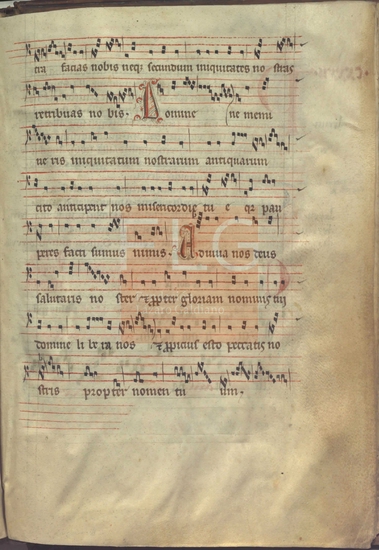 tra facias nobis neq; secundum iniquitates nostras
retribuas no bis. Domine ne memi
ne ris iniquitatum nostrarum antiquarum
cito anticipent nos misericordie tu e qr pau
peres facti sumus nimis. Adiuva nos deus
salutaris no ster et propter gloriam nominis tui
domine li be ra nos et propicius esto peccatis no
stris propter nomen tu um.